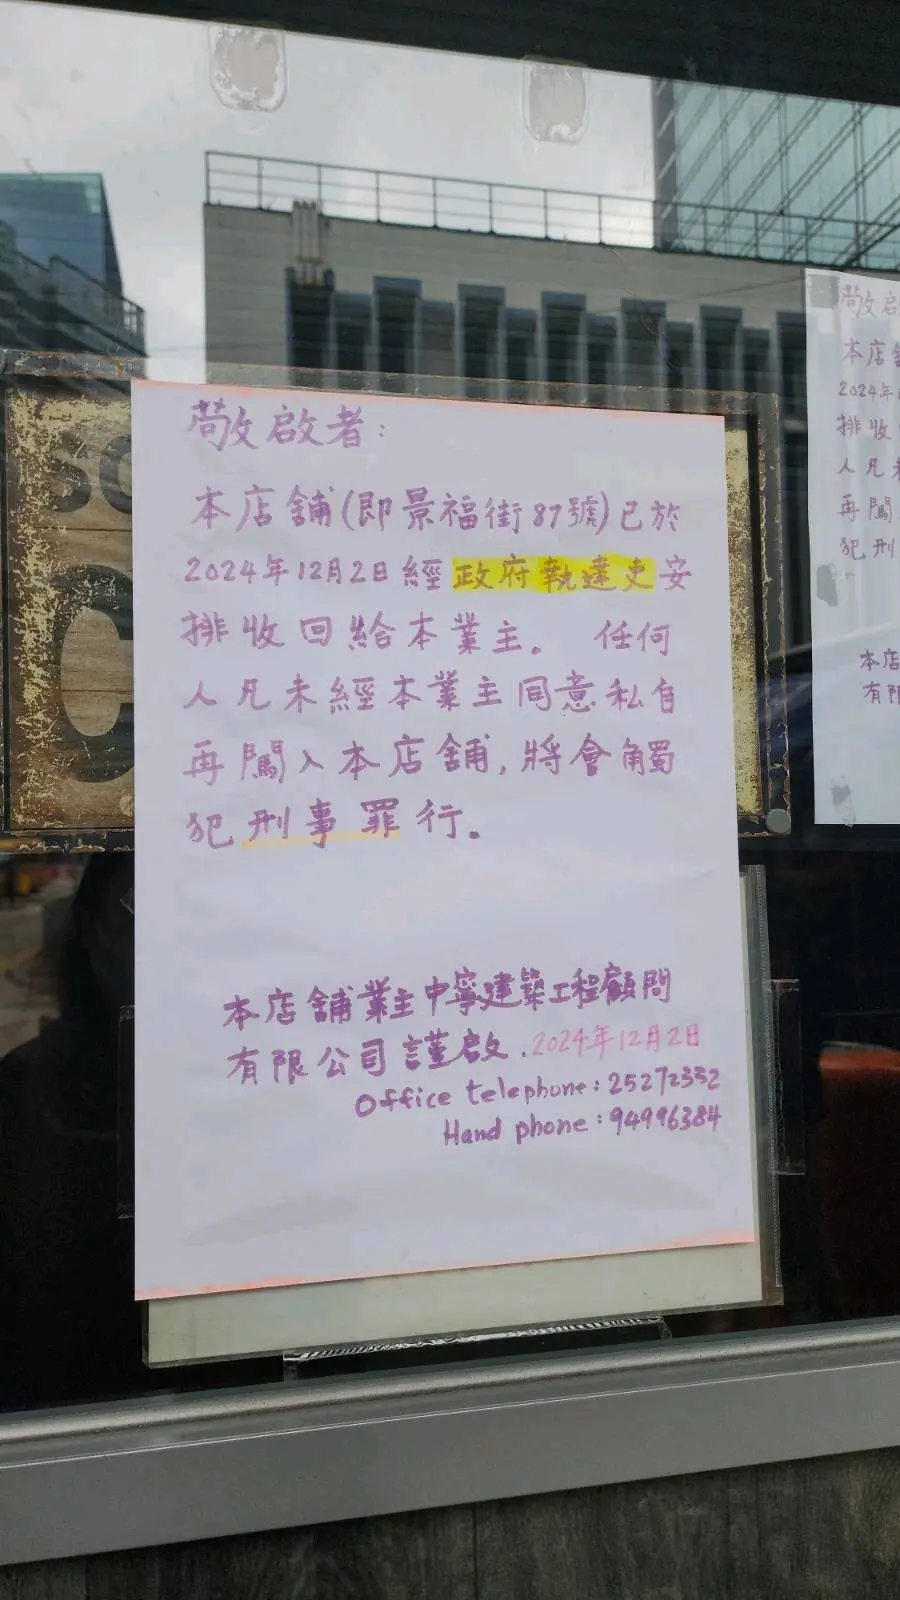 敬啟者：
本店舖(即景福街87號)已於
2024年12月2日經政府執達吏安
排收回給本業主。 任何
人凡未經本業主同意私自
再闖入本店舖，將會觸
犯刑事罪行。
本店舖業主中寧建築工程顧問
有限公司謹啟．2024年12月2日
Office telephone：25272332
Hand phone：94996384
敬啟
本店
2024年
排收
人凡未
再闖
犯刑
本店
有限